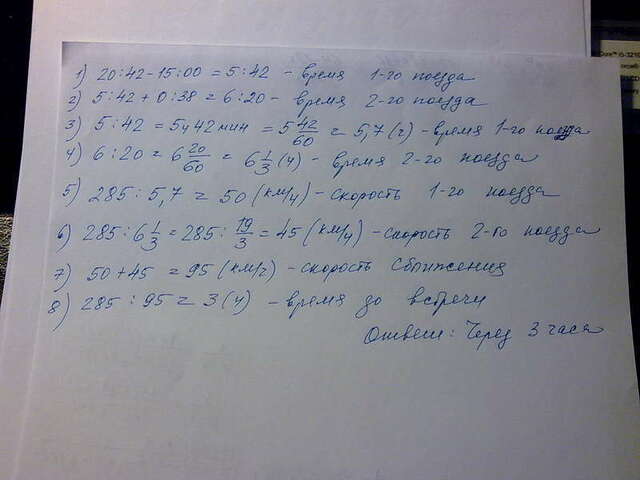 1) 20:42-15:00 = 5:42 - время 1-го поезда
2) 5:42 + 0:38 = 6:20 - время 2-го поезда
3) 5:42 = 5ч 42 мин = 5 42/60 = 5,7 (ч) - время 1-го поезда
4) 6:20 = 6 20/60 = 6 1/3 (ч) - время 2-го поезда
5) 285 : 5,7 = 50 (км/ч) - скорость 1-го поезда
6) 285 : 6 1/3 = 285 : 19/3 = 45 (км/ч) - скорость 2-го поезда
7) 50 + 45 = 95 (км/ч) - скорость сближения
8) 285 : 95 = 3 (ч) - время до встречи
Ответ: Через 3 часа